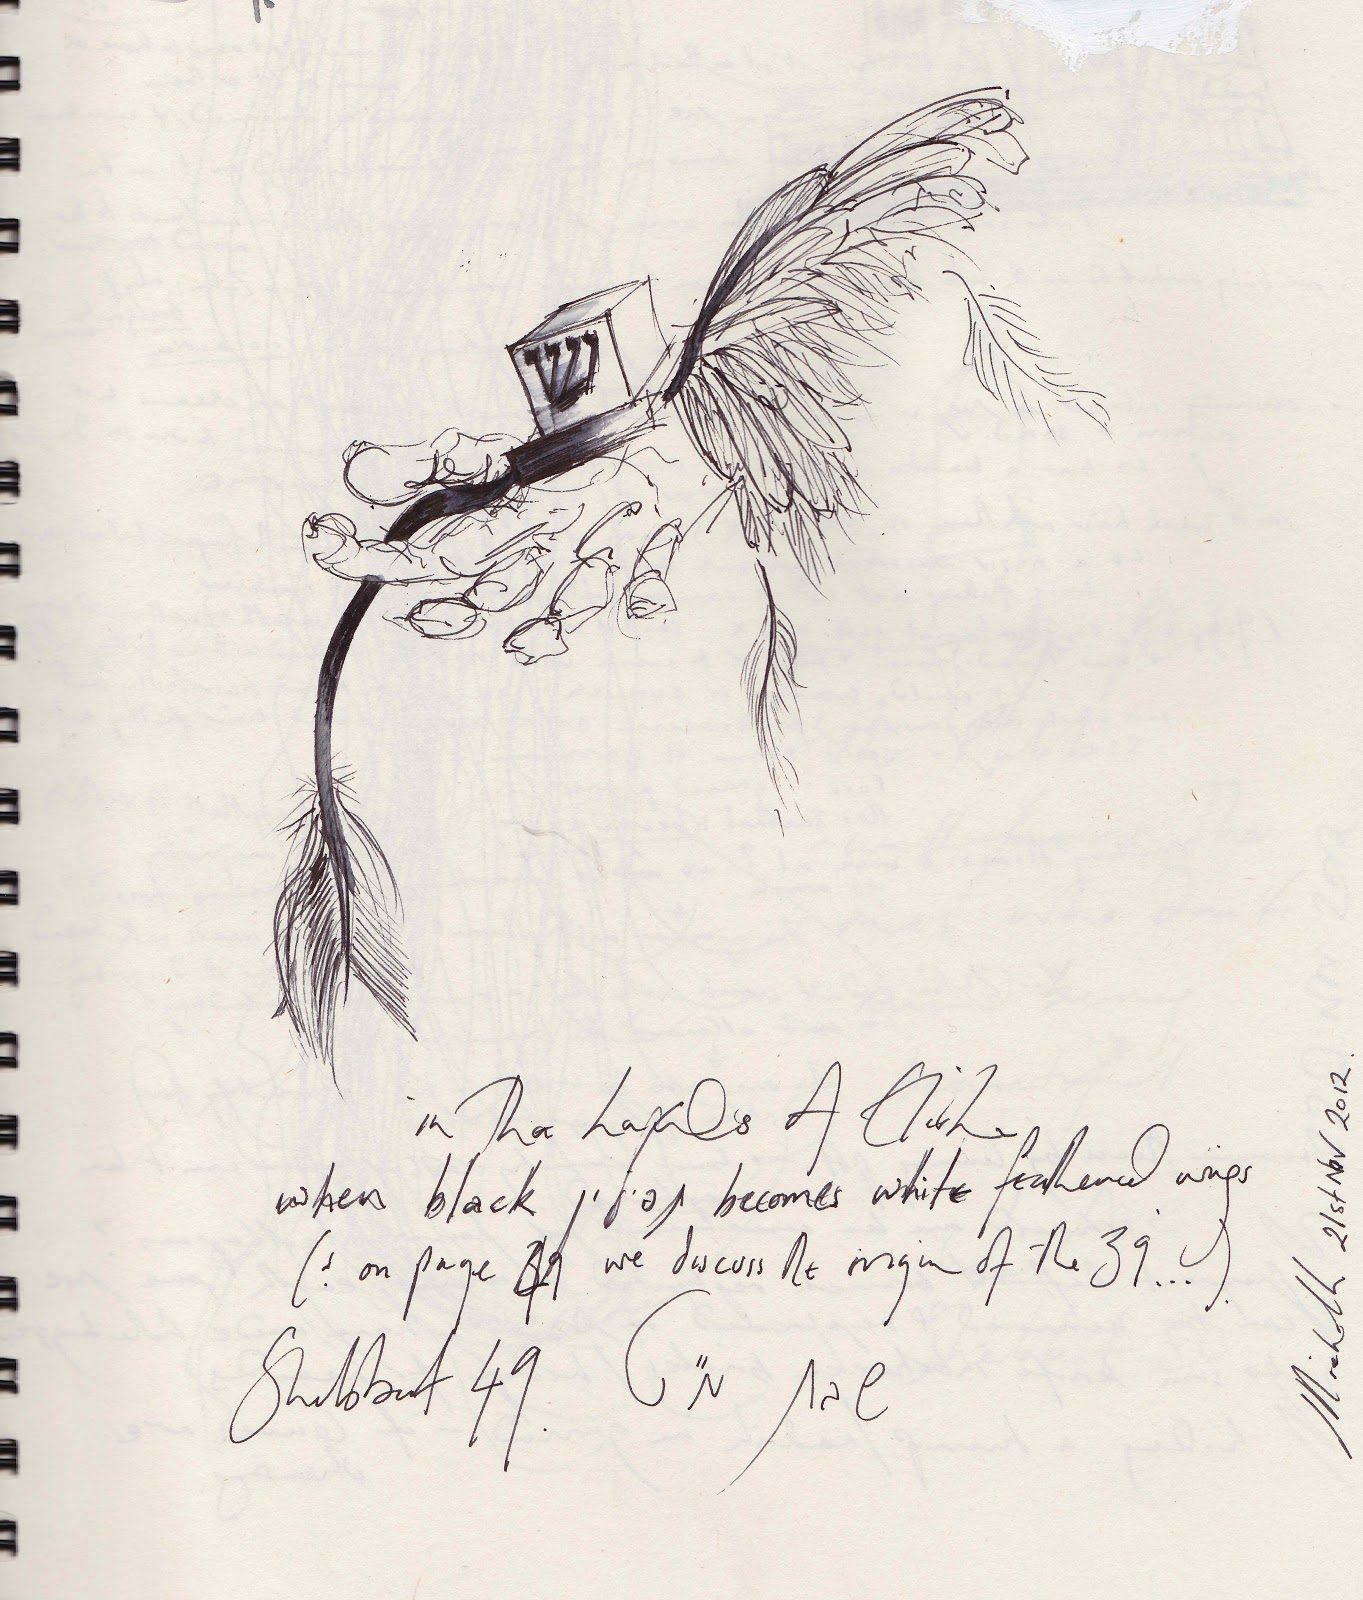 ש
in the hands of Elisha
when black תפילין becomes white feathered wings
(: on page 49 we discuss the origin of the 39...)
Shabbat 49.
שבת מ"ט
21st Nov 2012.